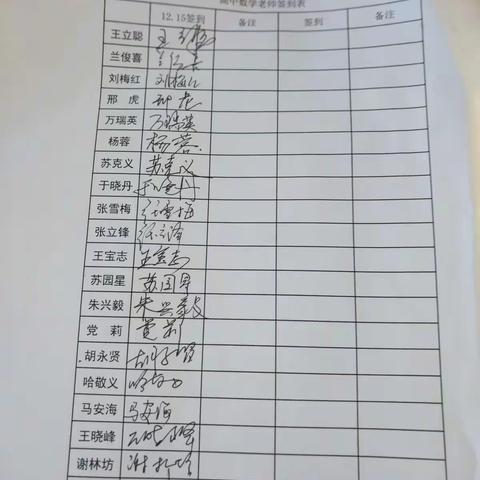 高中数学老师签到表
12.15签到 备注 签到 备注
王立聪 王立聪
兰俊喜
刘梅红 刘梅红
邢虎 邢虎
万瑞英 万瑞英
杨蓉 杨蓉
苏克义 苏克义
于晓丹 于晓丹
张雪梅 张雪梅
张立锋 张立锋
王宝志 王宝志
苏园星 苏园星
朱兴毅 朱兴毅
党莉 党莉
胡永贤 胡永贤
哈敬义
马安海 马安海
王晓峰 王晓峰
谢林坊